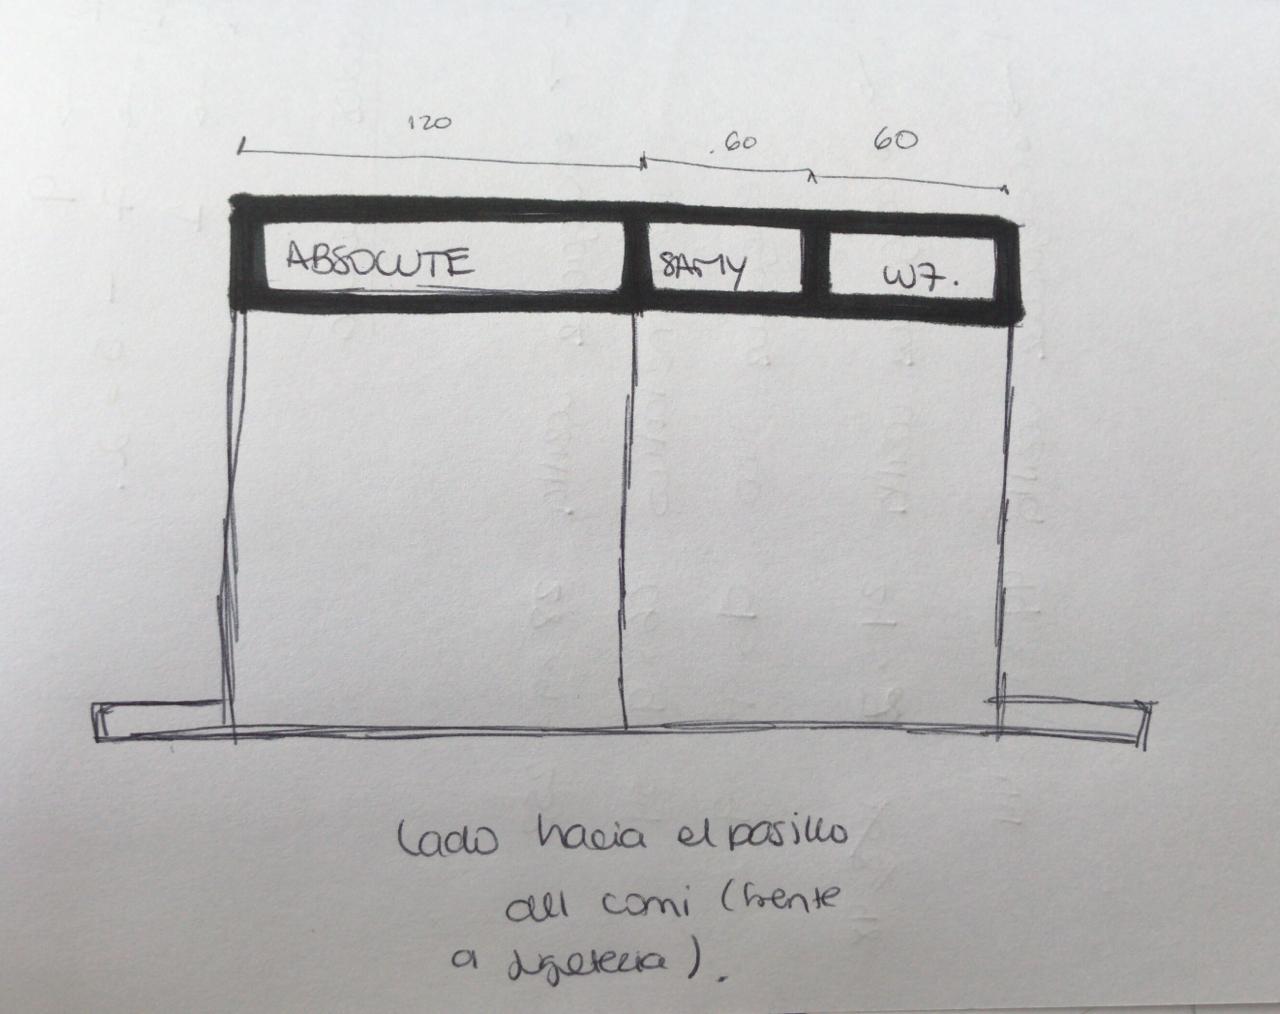 120 60 60
ABSOLUTE SAMY W7.
Lado hacia el pasillo
del comi (frente
a jugeteria).